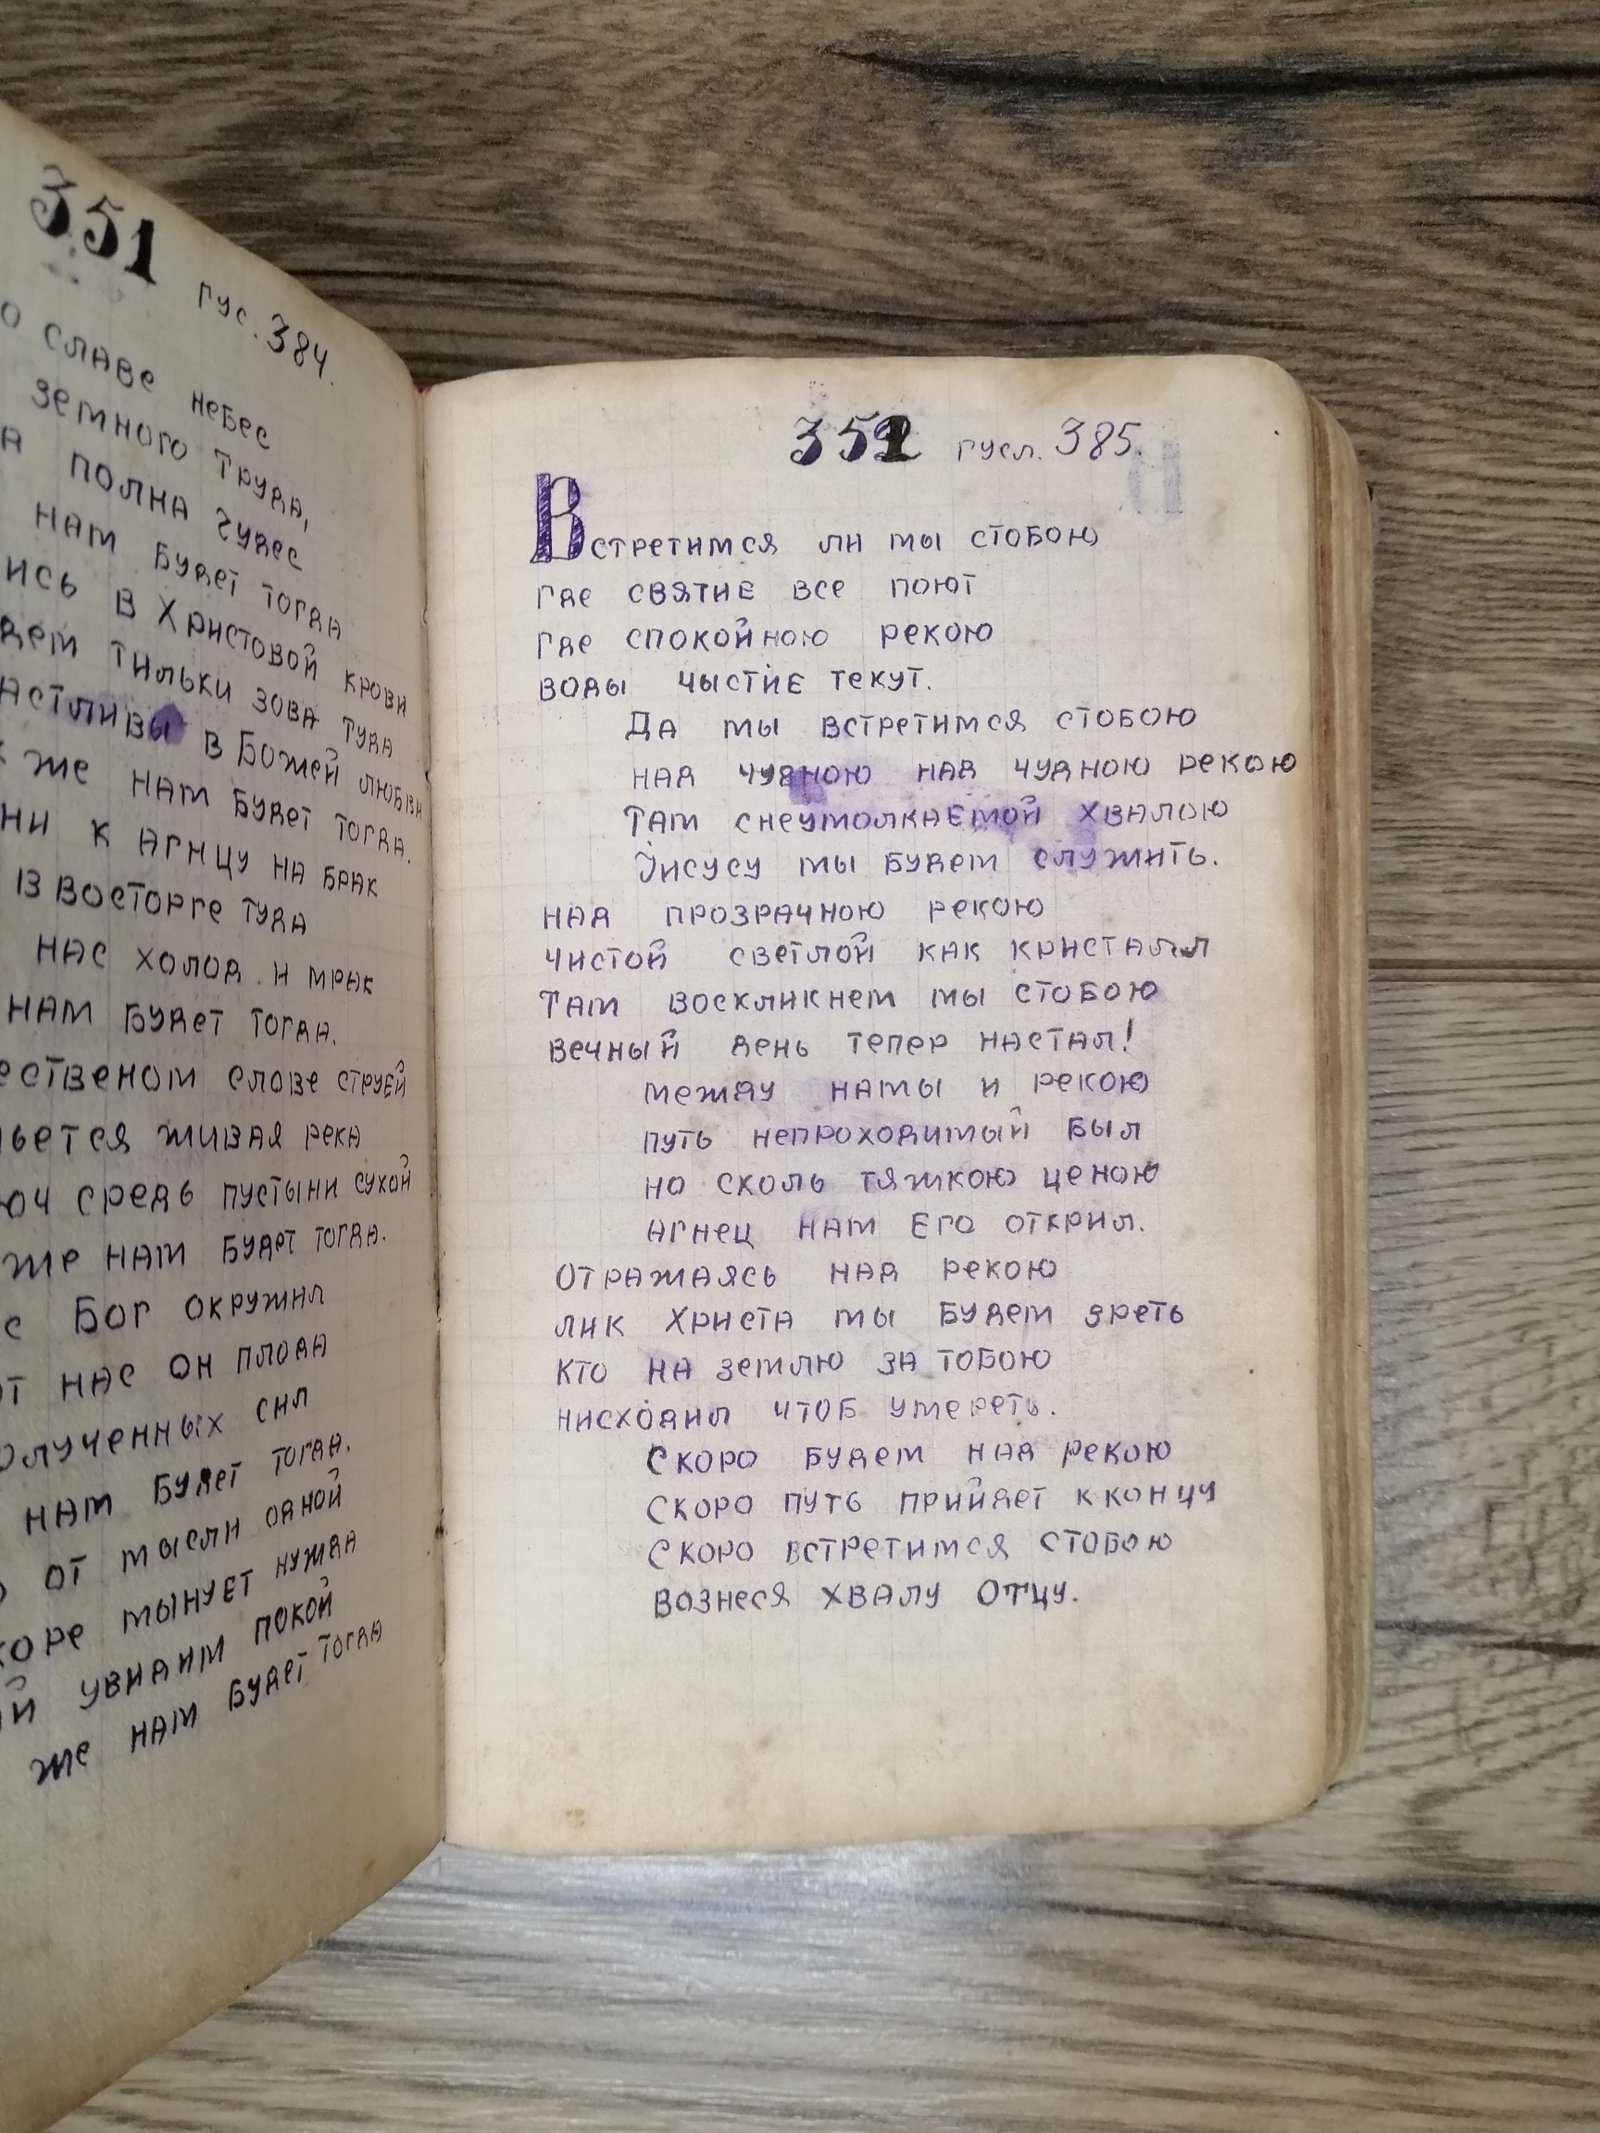 351 гус. 384.
о славе небес
земного труда,
а полна чудес
нам будет тогда
ись в Христовой крови
дем тильки зова туда
астливы в Божей любви
же нам будет тогда.
ни к агнцу на брак
в восторге туда
нас холод и мрак
нам будет тогда.
ественом слове струей
ьется живая река
юч средь пустыни сухой
же нам будет тогда.
с Бог окружил
от нас он плода
олученных сил
нам будет тогда.
от мысли одной
коре мынует нужда
ий увидим покой
же нам будет тогда
352 гусл. 385.
Встретимся ли мы стобою
где святие все поют
где спокойною рекою
воды чыстіе текут.
Да мы встретимся стобою
над чудною над чудною рекою
Там снеумолкаемой хвалою
Исусу мы будем служить.
над прозрачною рекою
чистой светлой как кристалл
там воскликнем мы стобою
вечный день тепер настал!
между намы и рекою
путь непроходимый был
но сколь тяжкою ценою
агнец нам Его открил.
отражаясь над рекою
лик Христа мы будем зреть
кто на землю за тобою
нисходил чтоб умереть.
Скоро будем над рекою
скоро путь прийдет кконцу
скоро встретимся стобою
вознеся хвалу отцу.